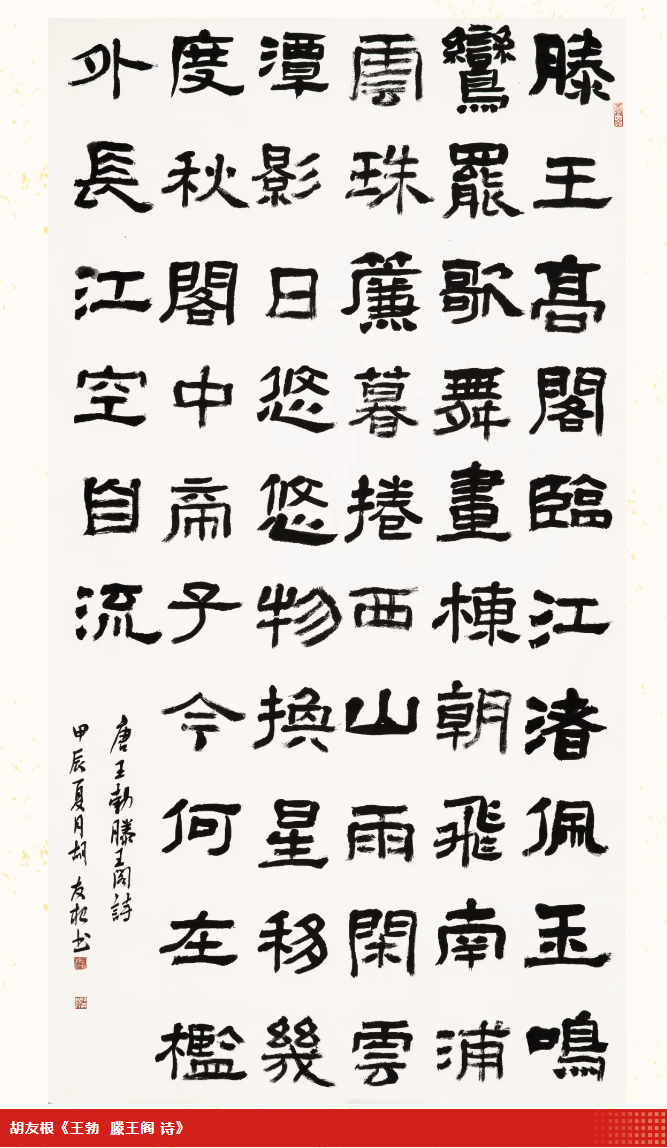 滕王髙閣臨江渚佩玉鳴
鸞罷歌舞畫棟朝飛南浦
雲珠簾暮捲西山雨閑雲
潭影日悠悠物換星移幾
度秋閣中帝子今何在檻
外長江空自流
唐王勃滕王阁詩
甲辰夏月胡友根书
胡友根《王勃 滕王阁 诗》